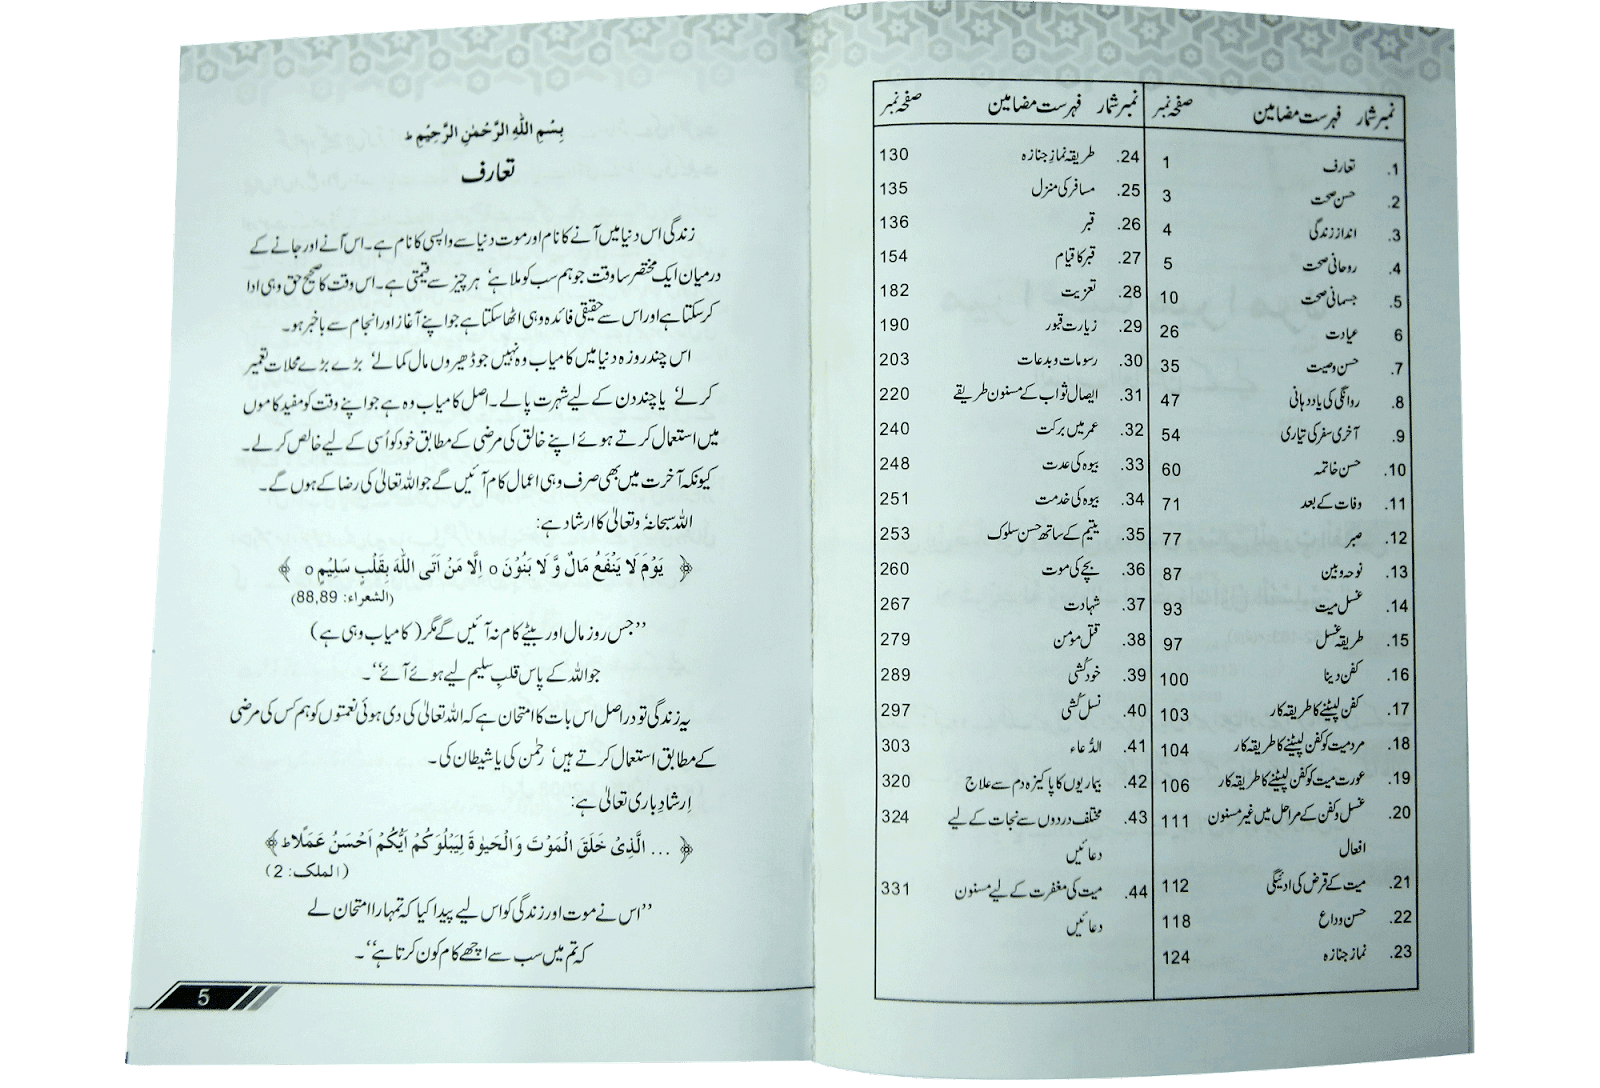 نمبر شمار فہرست مضامین صفحہ نمبر
1. تعارف 1
2. حسن صحت 3
3. انداز زندگی 4
4. روحانی صحت 5
5. جسمانی صحت 10
6 عیادت 26
7. حسن وصیت 35
8. روانگی کی یاد دہانی 47
9. آخری سفر کی تیاری 54
10. حسن خاتمہ 60
11. وفات کے بعد 71
12. صبر 77
13. نوحہ و بین 87
14. غسل میت 93
15. طریقہ غسل 97
16. کفن دینا 100
17. کفن لپیٹنے کا طریقہ کار 103
18. مرد میت کو کفن لپیٹنے کا طریقہ کار 104
19. عورت میت کو کفن لپیٹنے کا طریقہ کار 106
20. غسل و کفن کے مراحل میں غیر مسنون 111
افعال
21. میت کے قرض کی ادئیگی 112
22. حسن وداع 118
23. نماز جنازہ 124
نمبر شمار فہرست مضامین صفحہ نمبر
24. طریقہ نمازِ جنازہ 130
25. مسافر کی منزل 135
26. قبر 136
27. قبر کا قیام 154
28. تعزیت 182
29. زیارت قبور 190
30. رسومات و بدعات 203
31. ایصال ثواب کے مسنون طریقے 220
32. عمر میں برکت 240
33. بیوہ کی عدت 248
34. بیوہ کی خدمت 251
35. یتیم کے ساتھ حسن سلوک 253
36. بچے کی موت 260
37. شہادت 267
38. قتل مومن 279
39. خودکُشی 289
40. نسل کُشی 297
41. الدُّعاء 303
42. بیماریوں کا پاکیزہ دم سے علاج 320
43. مختلف دردوں سے نجات کے لیے 324
دعائیں
44. میت کی مغفرت کے لیے مسنون 331
دعائیں
بِسْمِ اللّٰهِ الرَّحْمٰنِ الرَّحِيْمِ ط
تعارف
زندگی اس دنیا میں آنے کا نام اور موت دنیا سے واپسی کا نام ہے۔ اس آنے اور جانے کے
درمیان ایک مختصر سا وقت جو ہم سب کو ملا ہے‘ ہر چیز سے قیمتی ہے۔ اس وقت کا صحیح حق وہی ادا
کر سکتا ہے اور اس سے حقیقی فائدہ وہی اٹھا سکتا ہے جو اپنے آغاز اور انجام سے باخبر ہو۔
اس چند روزہ دنیا میں کامیاب وہ نہیں جو ڈھیروں مال کمالے‘ بڑے بڑے محلات تعمیر
کرلے‘ یا چند دن کے لیے شہرت پالے۔ اصل کامیاب وہ ہے جو اپنے وقت کو مفید کاموں
میں استعمال کرتے ہوئے اپنے خالق کی مرضی کے مطابق خود کو اُسی کے لیے خالص کرلے۔
کیونکہ آخرت میں بھی صرف وہی اعمال کام آئیں گے جو اللہ تعالیٰ کی رضا کے ہوں گے۔
اللہ سبحانہٗ وتعالیٰ کا ارشاد ہے:
﴿ يَوْمَ لَا يَنْفَعُ مَالٌ وَّلَا بَنُوْنَ o اِلَّا مَنْ اَتَى اللّٰهَ بِقَلْبٍ سَلِيْمٍ o ﴾
(الشعراء: 88,89)
’’جس روز مال اور بیٹے کام نہ آئیں گے مگر (کامیاب وہی ہے)
جو اللہ کے پاس قلبِ سلیم لیے ہوئے آئے‘‘۔
یہ زندگی تو دراصل اس بات کا امتحان ہے کہ اللہ تعالیٰ کی دی ہوئی نعمتوں کو ہم کس کی مرضی
کے مطابق استعمال کرتے ہیں‘ رحمٰن کی یا شیطان کی۔
اِرشادِ باری تعالیٰ ہے:
﴿ ... الَّذِىْ خَلَقَ الْمَوْتَ وَالْحَيٰوةَ لِيَبْلُوَكُمْ اَيُّكُمْ اَحْسَنُ عَمَلًا ط ﴾
(الملک: 2)
’’اس نے موت اور زندگی کو اس لیے پیدا کیا کہ تمہارا امتحان لے
کہ تم میں سب سے اچھے کام کون کرتا ہے‘‘۔
5